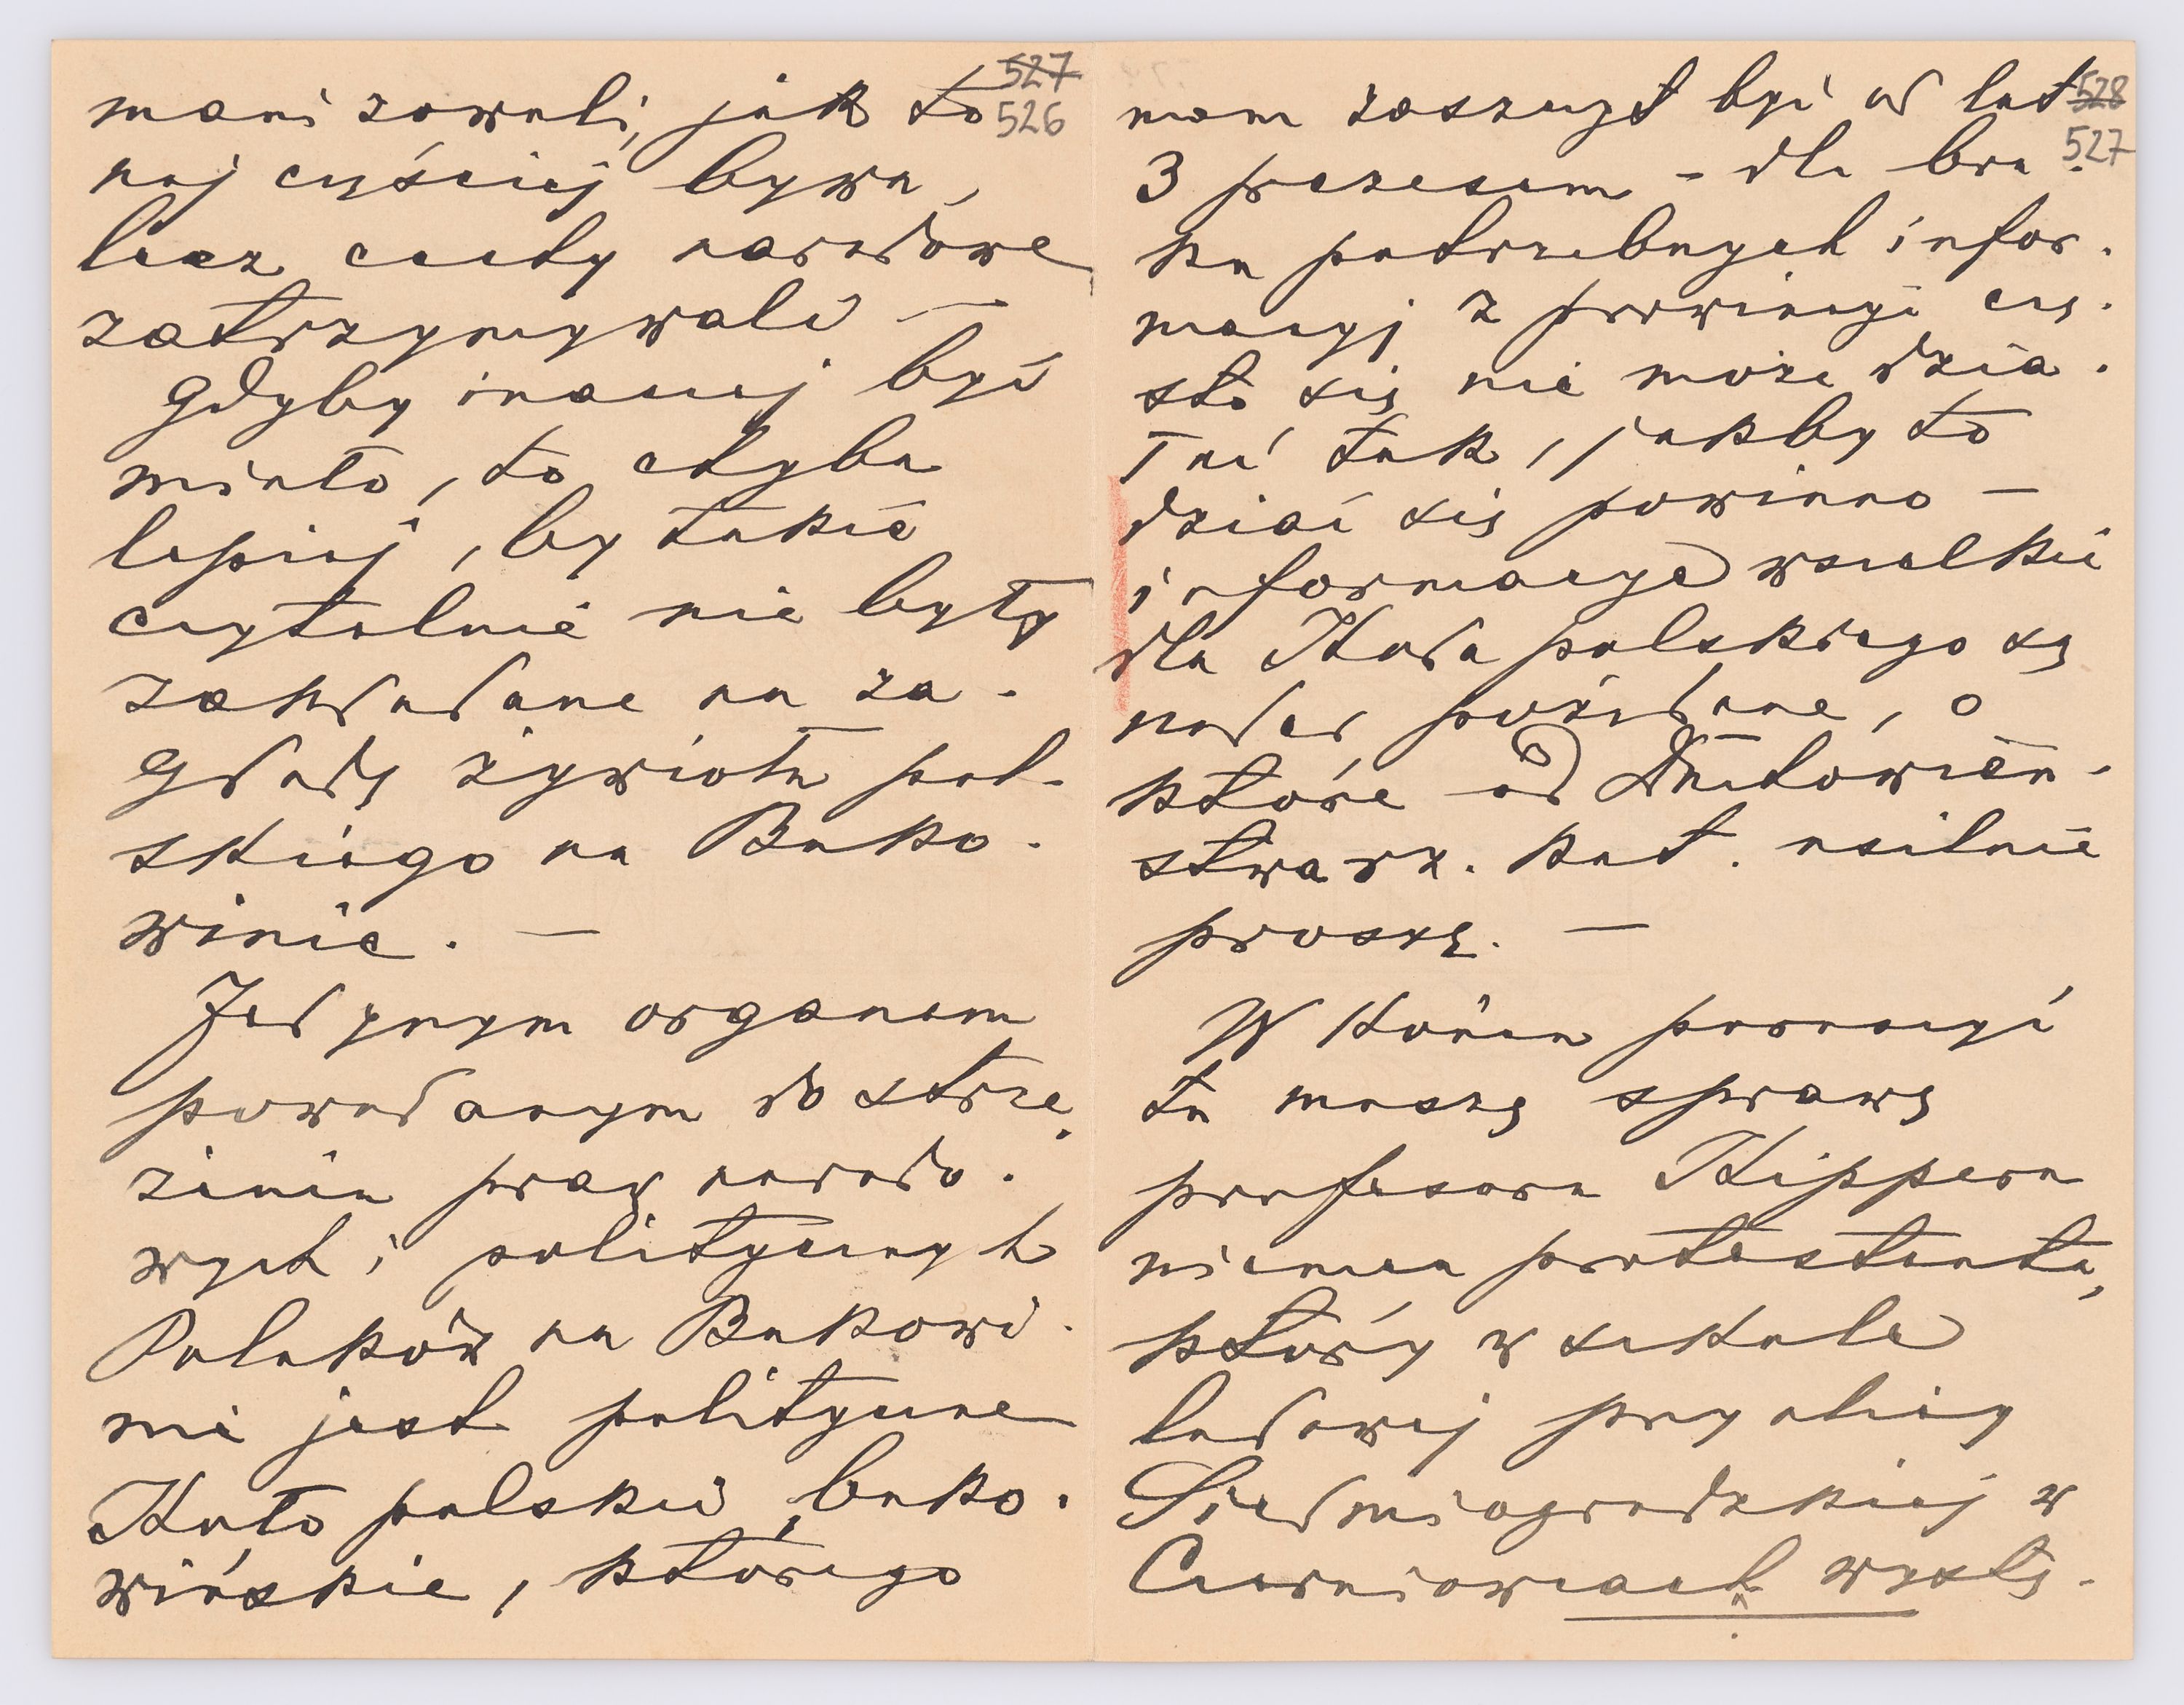 527
526
manizowali, jak to
najczęściej bywa,
lecz cechy narodowe
zatrzymywali —
Gdyby inaczej być
miało, to chyba
lepiej, by takie
czytelnie nie były
zakładane na za-
gładę żywiołu pol-
skiego na Buko-
winie. —
Jedynym organem
powołanym do strze-
żenia praw narodo-
wych i politycznych
Polaków na Bukowi-
nie jest polityczne
Koło polskie buko-
wińskie, którego
528
527
mam zaszczyt być od lat
3 prezesem - dla bra-
ku potrzebnych infor-
macyj z prowincyi czę-
sto się nie może dzia-
łać tak, jakby to
dziać się powinno —
informacye wszelkie
dla Koła polskiego są
nader pożądane, o
które od Duchowień-
stwa rz. kat. usilnie
proszę. —
W końcu poruszyć
tu muszę sprawę
profesora Kippera
niemca protestanta,
który w szkole
ludowej przy ulicy
Siedmiogrodzkiej w
Czerniowcach wystę-